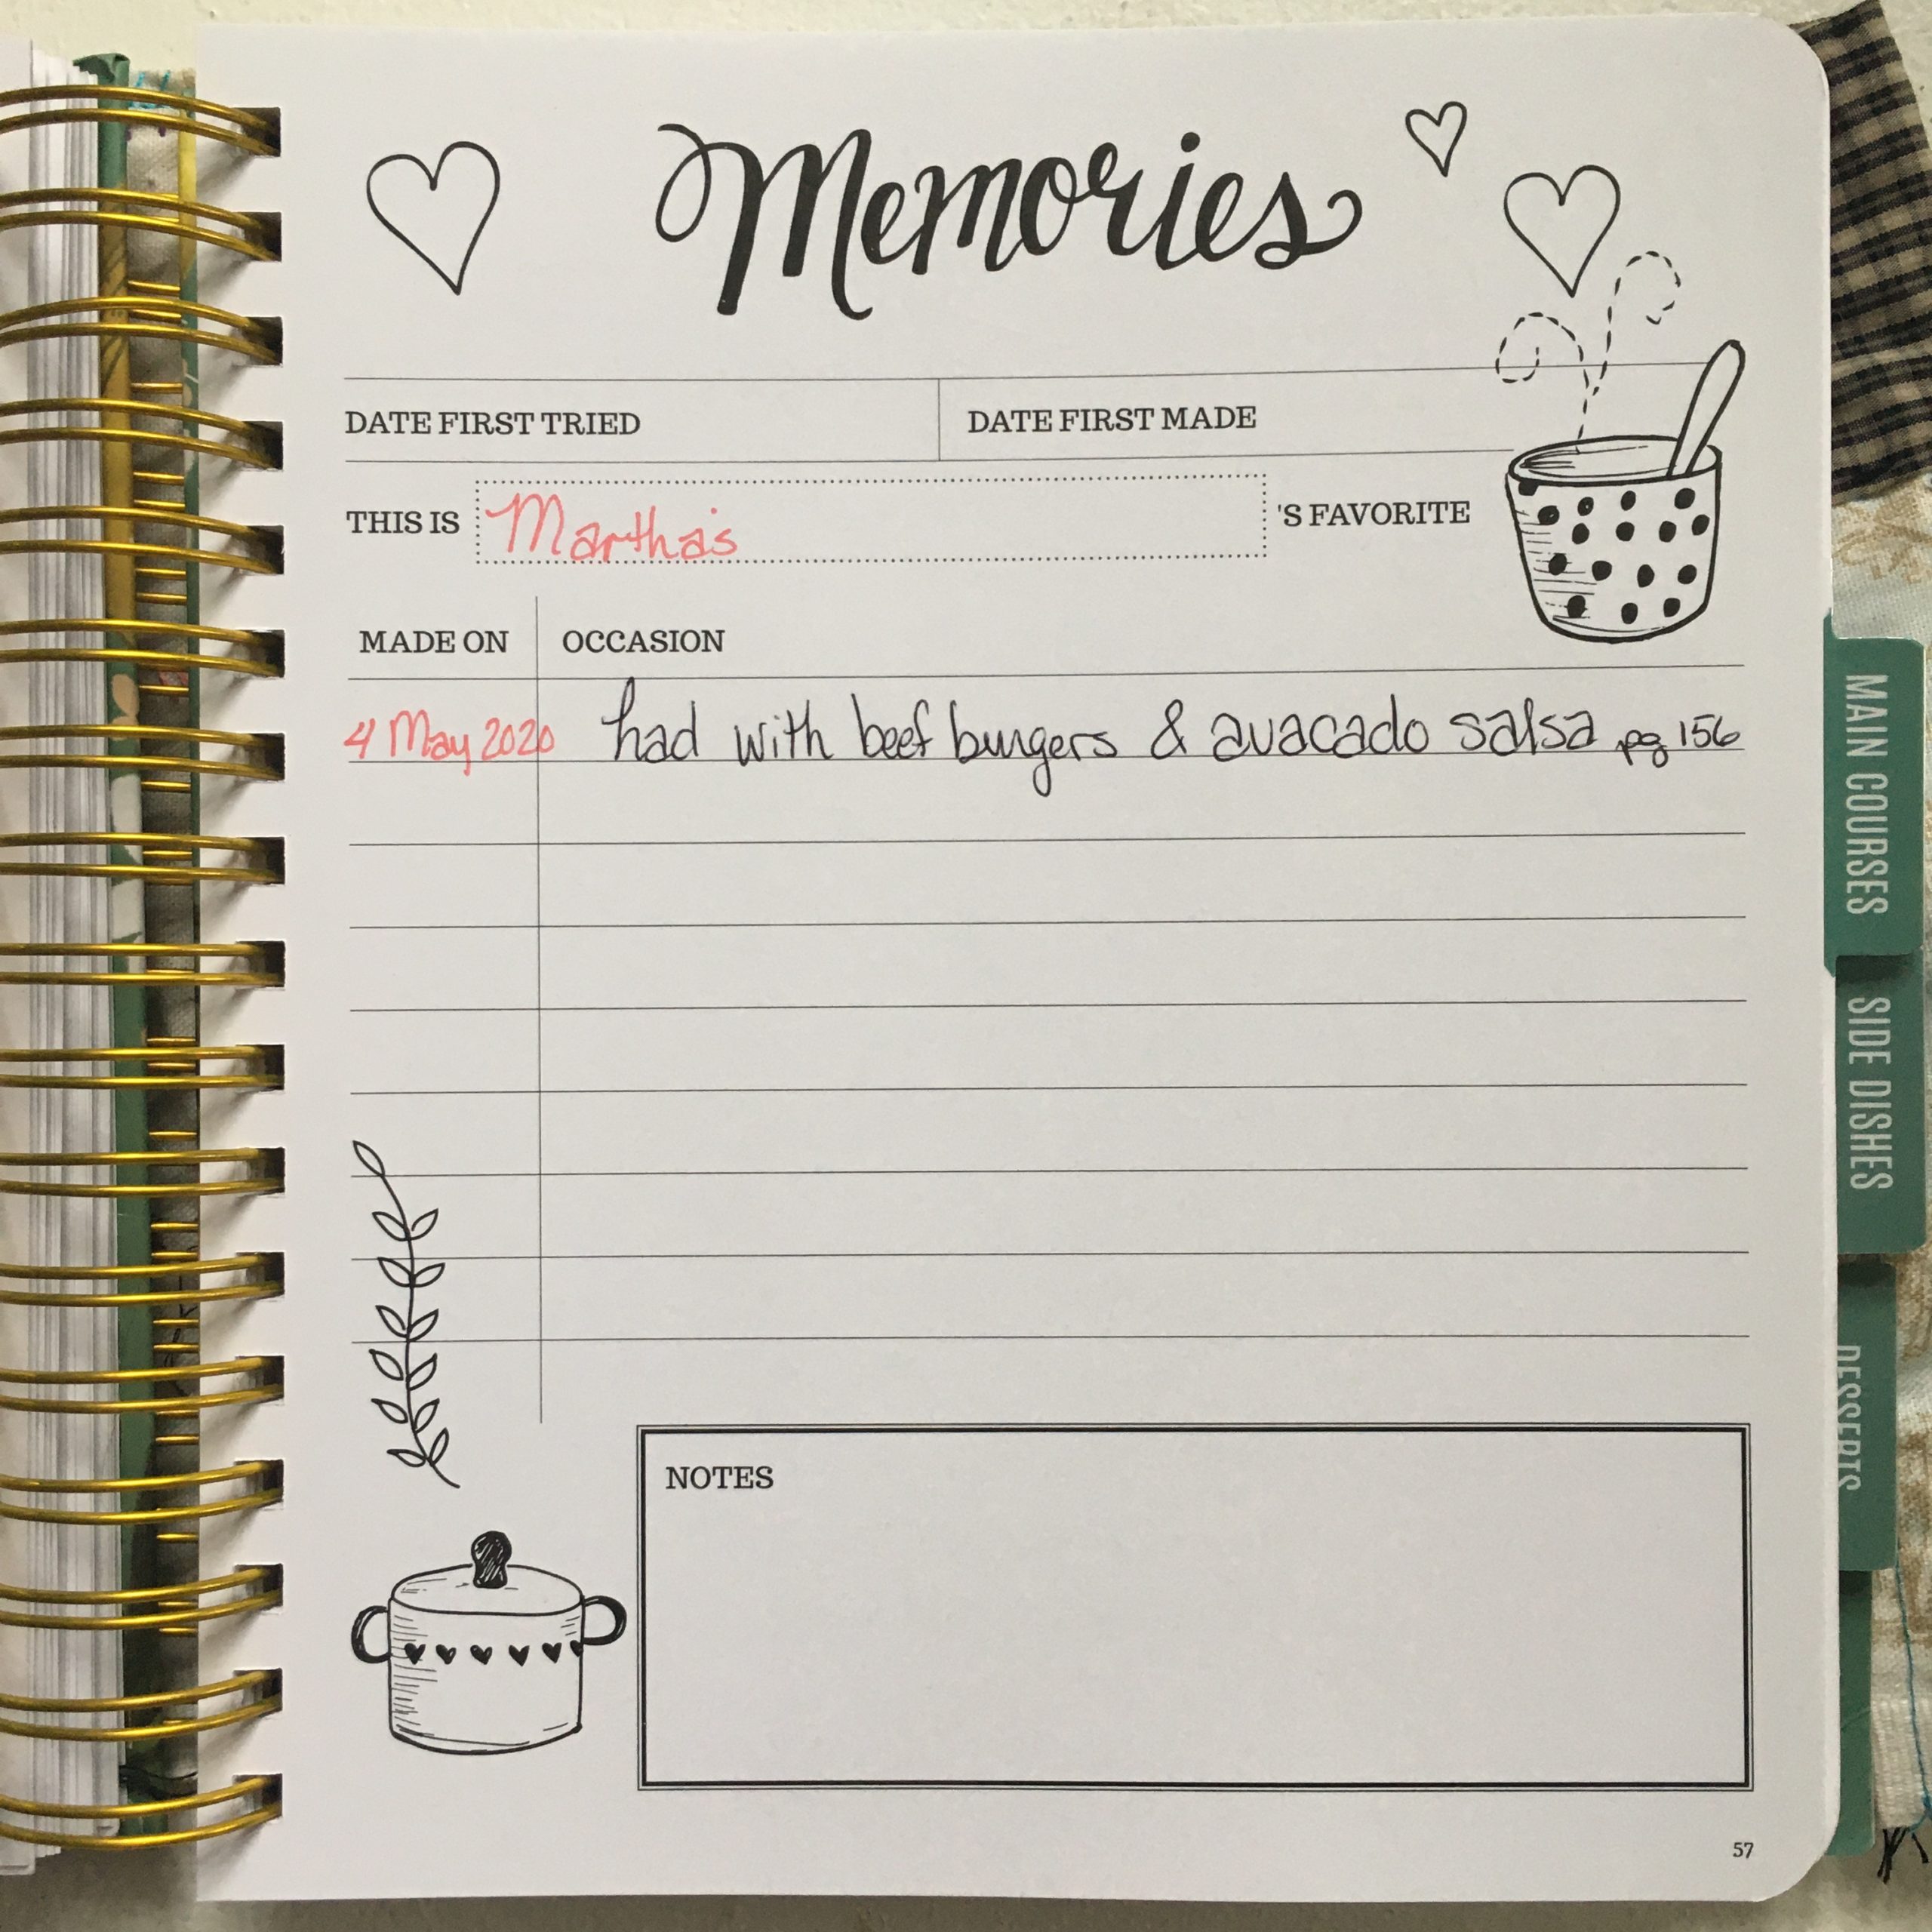 Memories
DATE FIRST TRIED DATE FIRST MADE
THIS IS Martha's 'S FAVORITE
MADE ON OCCASION
4 May 2020 had with beef burgers & avacado salsa pg 156
NOTES
57
MAIN COURSES
SIDE DISHES
DESSERTS